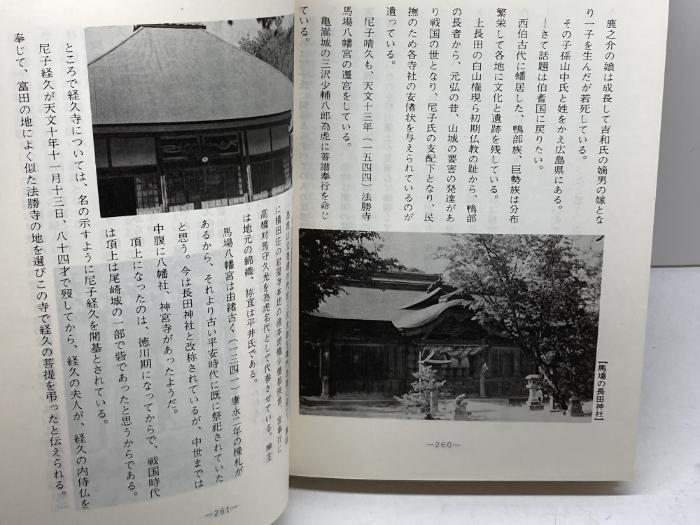 鹿之介の娘は成長して吉和氏の嫡男の嫁とな
り一子を生んだが若死している。
その子孫山中氏と姓をかえ広島県にある。
―さて話題は伯耆国に戻りたい。
西伯古代に蟠居した、鴨部族、巨勢族は分布
繁栄して各地に文化と遺跡を残している。
上長田の白山権現ら初期仏教の趾から、鴨部
の長者から、元弘の昔、山城の要害の発達があ
り戦国の世となり、尼子氏の支配下となり、民
撫のため各寺社の安堵状を与えられているのが
遺っている。
尼子晴久も、天文十三年(一五四四)法勝寺
馬場八幡宮の遷宮をしている。
亀嵩城の三沢少輔八郎為虎に菩譜奉行を命じ
ている。
【馬場の長田神社】
―260―
高橋対馬守久光を為虎名代として代参させている。神主
は地元の錦織、祢宜は平井氏である。
馬場八幡宮は由緒古く(一三四一)康永二年の棟札が
あるから、それより古い平安時代に既に祭祀されていた
と思う。今は長田神社と改称されているが、中世までは
中腹に八幡社、神宮寺があったようだ。
頂上になったのは、徳川期になってからで、戦国時代
は頂上は尾崎城の一部で砦であったと思うからである。
ところで経久寺については、名の示すように尼子経久を開基とされている。
尼子経久が天文十年十一月十三日、八十四才で歿してから、経久の夫人が、経久の内侍仏を
奉じて、富田の地によく似た法勝寺の地を選びこの寺で経久の菩提を弔ったと伝えられる。
―261―